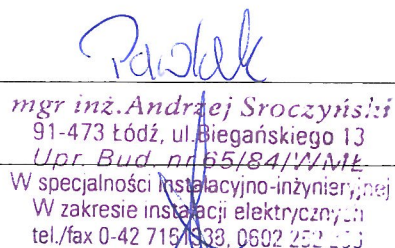 Pawlak
mgr inż. Andrzej Sroczyński
91-473 Łódź, ul. Biegańskiego 13
Upr. Bud. nr 65/84/WMŁ
W specjalności instalacyjno-inżynieryjnej
W zakresie instalacji elektrycznych
tel./fax 0-42 715 0602